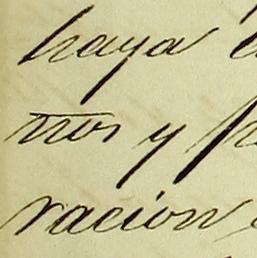 haya
tros y
racion